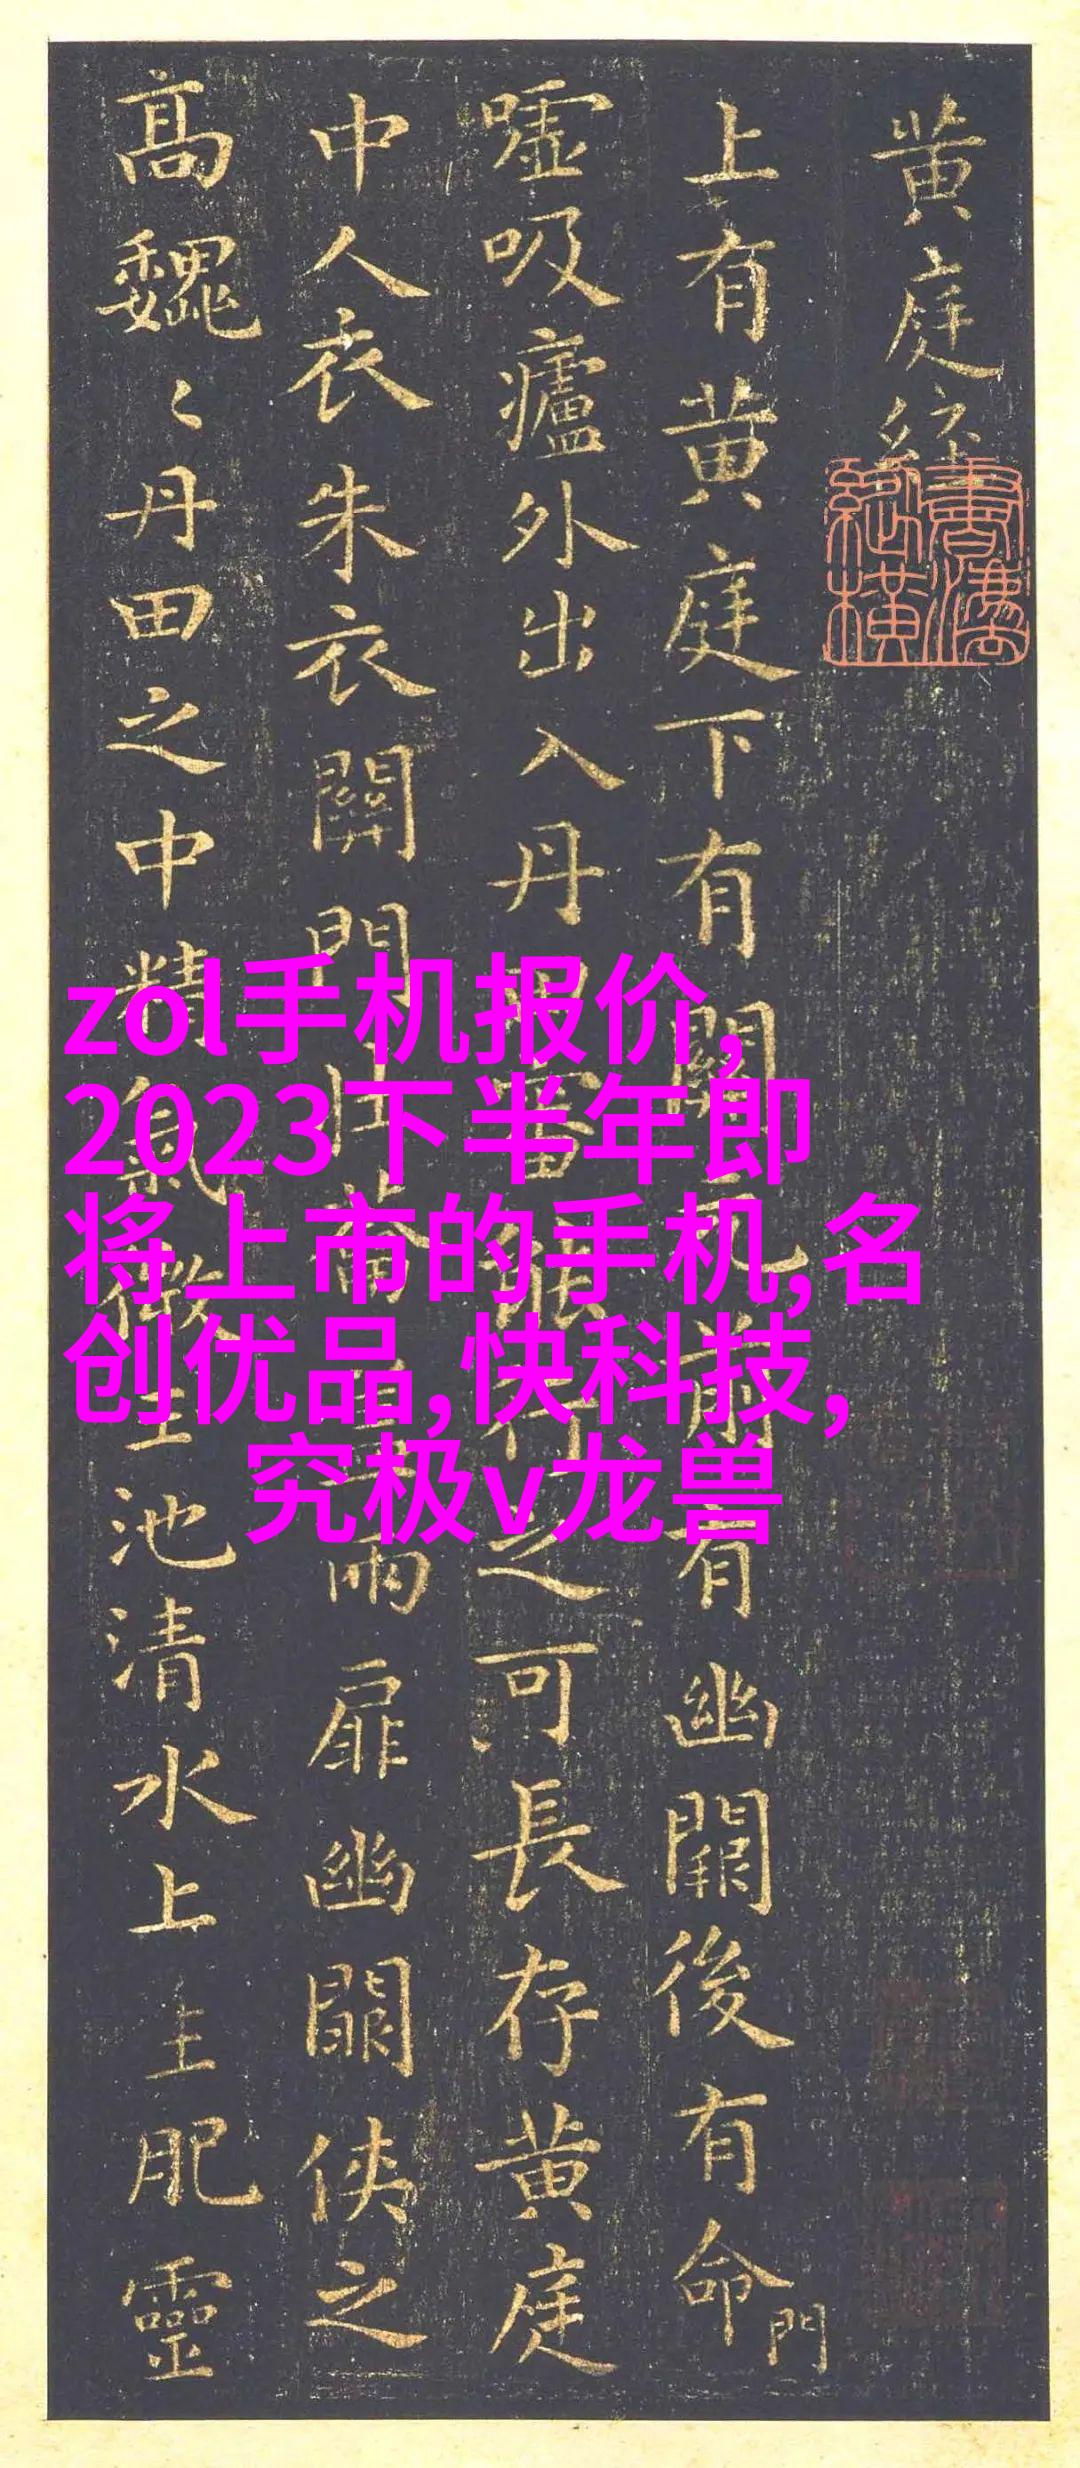 黄庭經
上有黄庭下有關元前有幽闕後有命門
嘘吸廬外出入丹田審能行之可長存黄庭
中人衣朱衣關門壮籥盖兩扉幽闕侠之
髙魏〻丹田之中精氣微玉池清水上生肥靈
zol手机报价,
2023下半年即
将上市的手机,名
创优品,快科技,
究极v龙兽